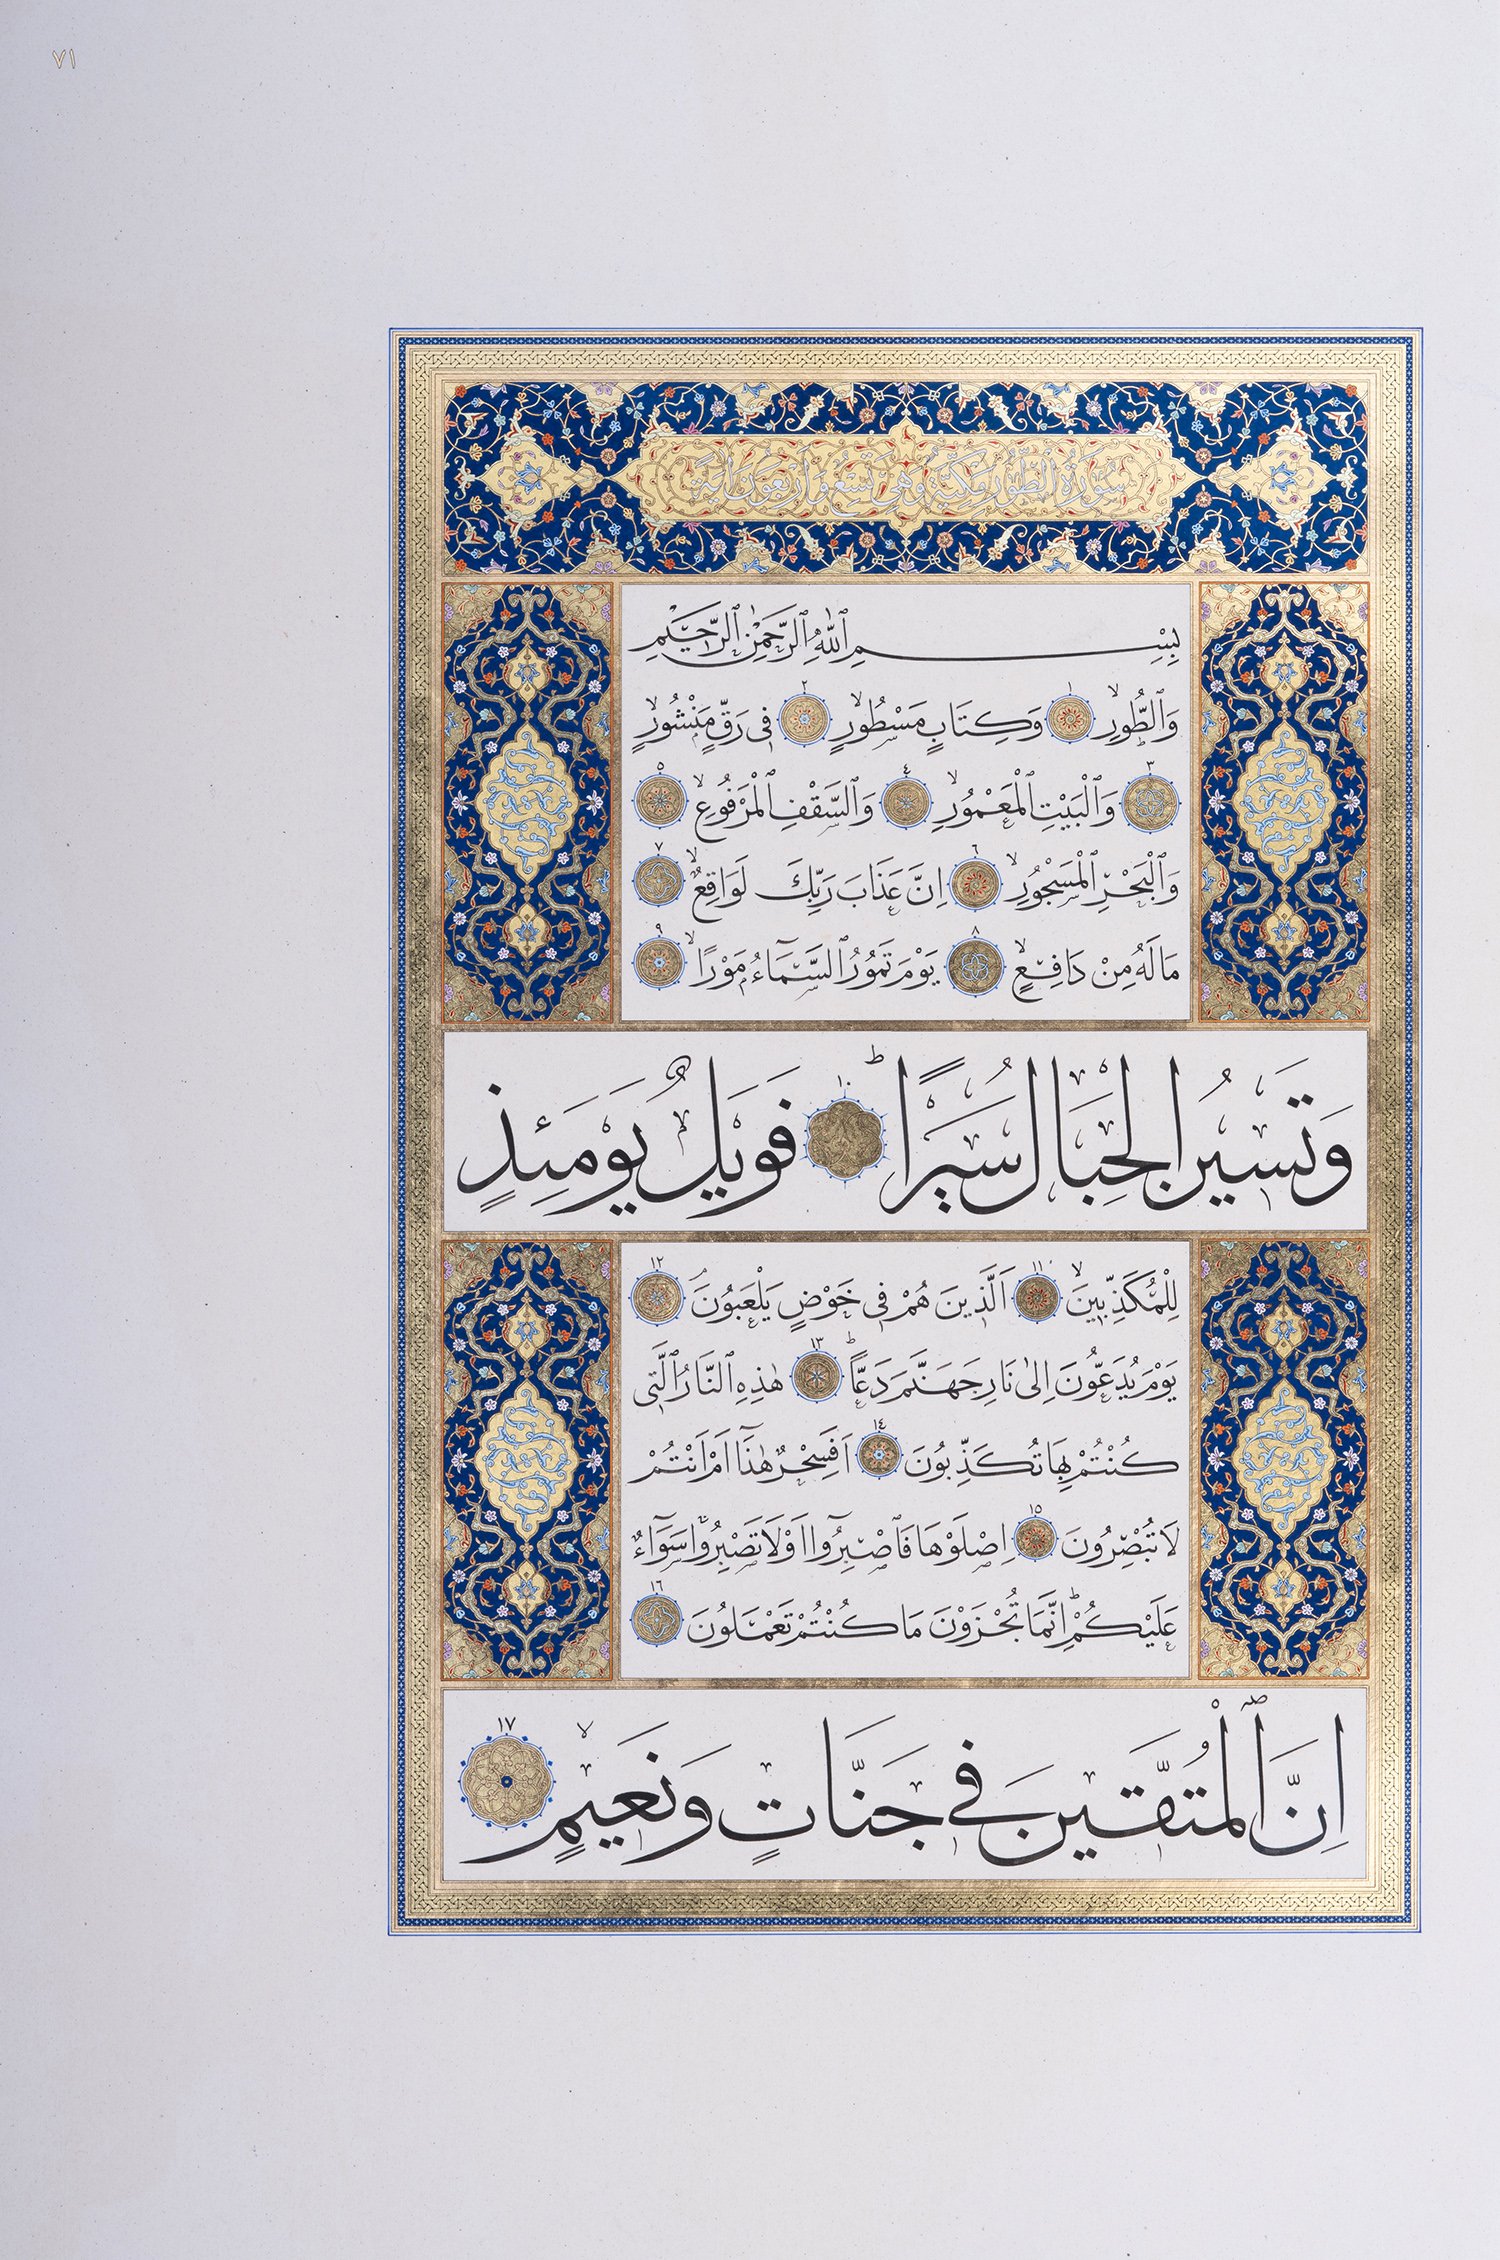 ٧١
سُورَةُ الطُّورِ مَكِّيَّةٌ وَهِيَ تِسْعٌ وَاَرْبَعُونَ اٰيَةً
بِسْمِ ٱللّٰهِ ٱلرَّحْمٰنِ ٱلرَّحِيْمِ
وَٱلطُّورِۙ ١ وَكِتَابٍ مَسْطُورٍۙ ٢ فِى رَقٍّ مَنْشُورٍۙ
٣ وَٱلْبَيْتِ ٱلْمَعْمُورِۙ ٤ وَٱلسَّقْفِ ٱلْمَرْفُوعِۙ ٥
وَٱلْبَحْرِ ٱلْمَسْجُورِۙ ٦ اِنَّ عَذَابَ رَبِّكَ لَوَاقِعٌۙ ٧
مَا لَهُ مِنْ دَافِعٍۙ ٨ يَوْمَ تَمُورُ ٱلسَّمَآءُ مَوْرًاۙ ٩
وَتَسِيْرُ الْجِبَالُ سَيْرًاۜ ١٠ فَوَيْلٌ يَوْمَئِذٍ
لِلْمُكَذِّبِيْنَۙ ١١ اَلَّذِينَ هُمْ فِى خَوْضٍ يَلْعَبُونَۘ ١٢
يَوْمَ يُدَعُّونَ اِلٰى نَارِ جَهَنَّمَ دَعًّاۜ ١٣ هٰذِهِ ٱلنَّارُ ٱلَّتِى
كُنْتُمْ بِهَا تُكَذِّبُونَ ١٤ اَفَسِحْرٌ هٰذَٓا اَمْ اَنْتُمْ
لَا تُبْصِرُونَ ١٥ اِصْلَوْهَا فَٱصْبِرُٓوا اَوْ لَا تَصْبِرُواۚ سَوَٓاءٌ
عَلَيْكُمْۜ اِنَّمَا تُجْزَوْنَ مَا كُنْتُمْ تَعْمَلُونَ ١٦
اِنَّ ٱلْمُتَّقِيْنَ فِي جَنَّاتٍ وَنَعِيْمٍۙ ١٧